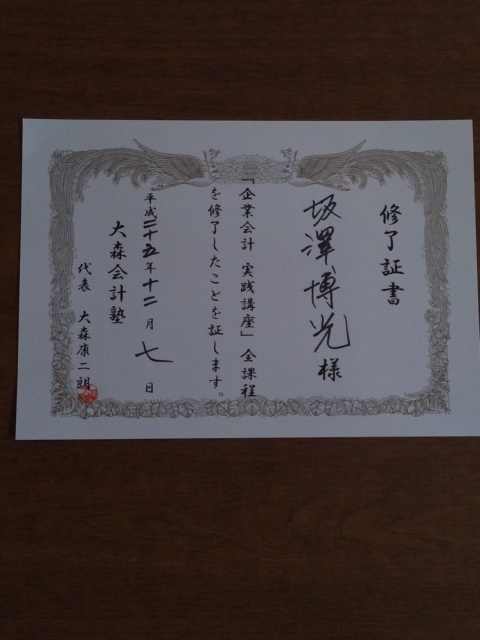 修了証書
坂澤博光様
「企業会計 実践講座」全課程
を修了したことを証します。
平成二十五年十二月七日
大森会計塾
代表 大森康二朗